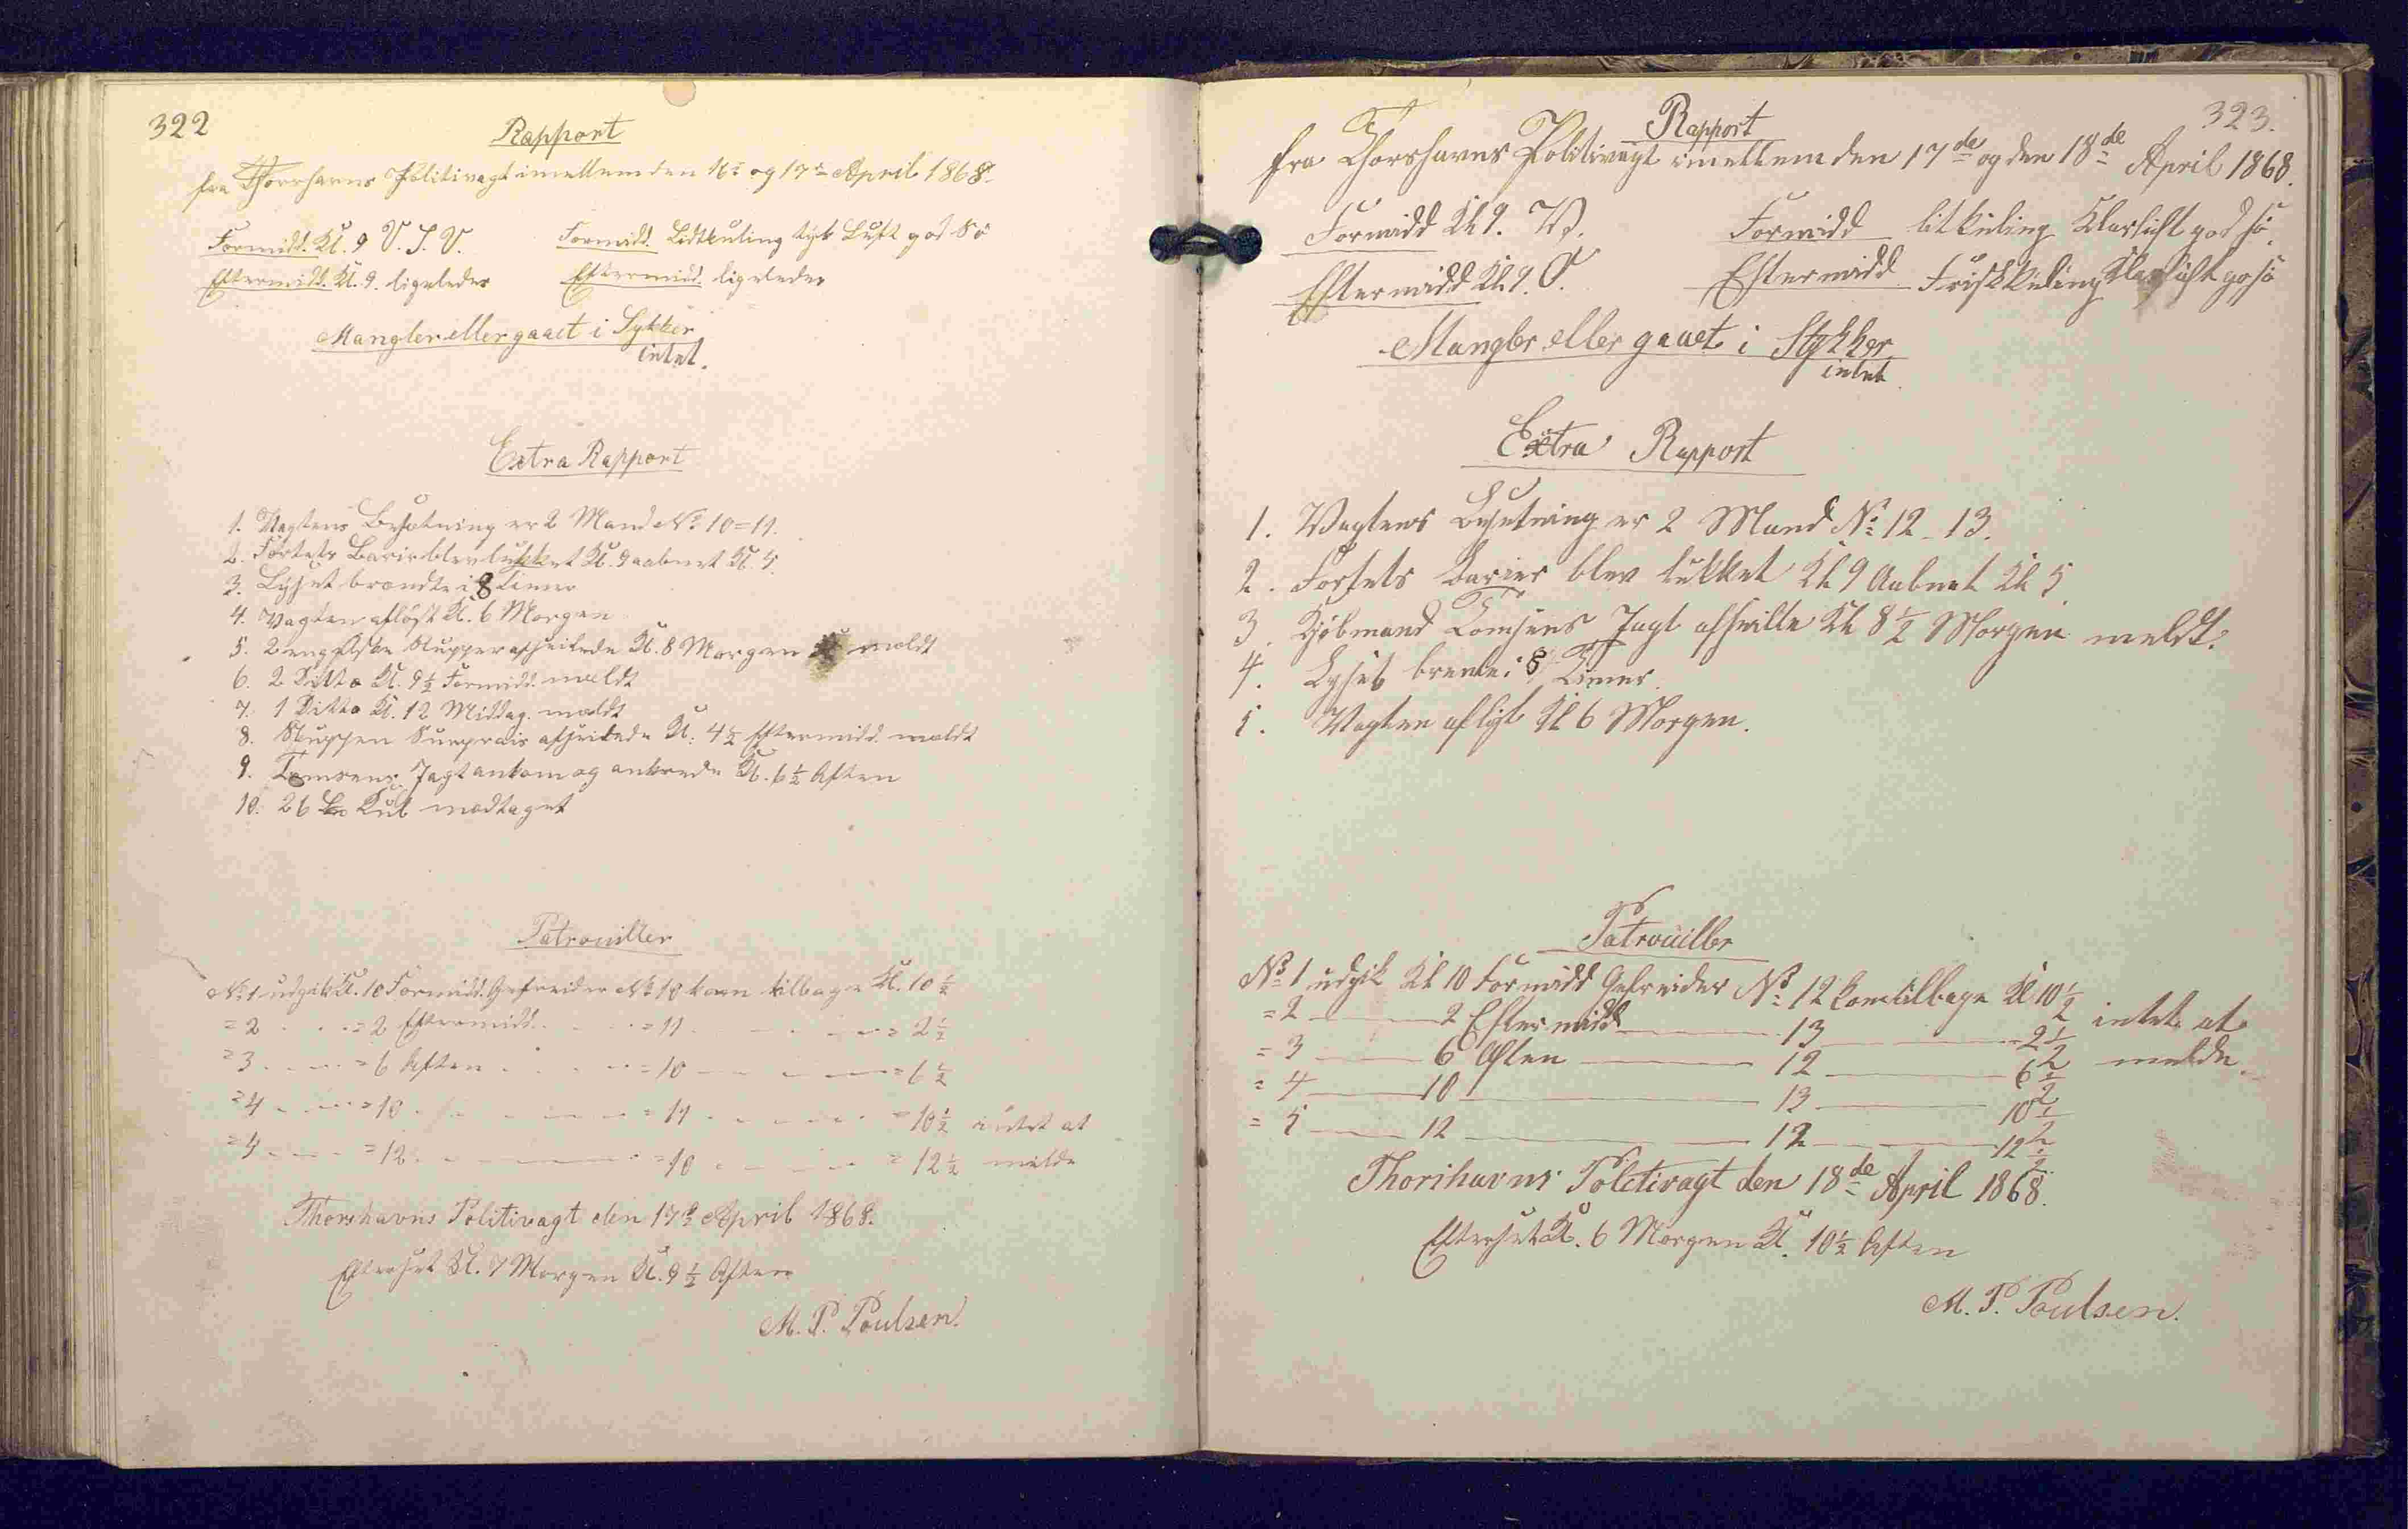 322
Rapport
fra Thorshavns Politivagt imellem den 16e og 17e April 1868.
Formidd. Kl. 9 V. S. V. Formidd. Lidtkuling tyk Luft god Sö
Eftermidd. Kl. 9. ligeledes Eftermidd. ligeledes
Mangler eller gaaet i Sykker
intet.
Extra Rapport
1. Vagtens Besætning er 2 Mand No 10=11.
2. Fortets Barir blev lukket Kl. 9 aabnet Kl. 5.
3. Lyset brændte i 8 Timer
4. Vagten aflöst Kl. 6 Morgen
5. 2 engelske Slupper afseilede Kl. 8 Morgen meldt
6. 2 Ditto Kl. 9 1/2 Formidd. meldt
7. 1 Ditto Kl. 12 Middag. meldt
8. Sluppen Surprais afseilede Kl. 4 1/2 Eftermidd. meldt
9. Tomsens Jagt ankom og ankrede Kl. 6 1/2 Aften
10. 26 Kul modtaget
Patrouiller
No 1 udgik Kl. 10 Formidd. Gefreider No 10 kom tilbage Kl. 10 1/2
=2 =2 Eftermidd. =11 =2 1/2
=3 =6 Aften =10 =6 1/2
=4 =10 =11 =10 1/2 intet at
=5 =12 =10 =12 1/2 melde
Thorshavns Politivagt den 17e April 1868.
Efterset Kl. 7 Morgen Kl. 9 1/2 Aften
M. P. Poulsen.
323.
Rapport
fra Thorshavns Politivagt imellem den 17de og den 18de April 1868.
Formidd Kl 9. V. Formidd litkuling Klarluft god sö.
Eftermidd Kl 9. O. Eftermidd Friskkuling Klarluft go sö
Mangler eller gaaet i Stykker
intet.
Extra Rapport
1. Vagtens Besetning er 2 Mand No 12-13.
2. Fortets Barier blev lukket Kl 9 Aabnet Kl 5
3. Kjöbmand Tomsens Jagt afseilte Kl 8 1/2 Morgen meldt.
4. Lyset brente i 8 Timer.
5. Vagten aflöst Kl 6 Morgen.
Patrouiller
No 1 udgik Kl 10 Formidd Gefreider No 12 kom tilbage Kl 10 1/2
=2 2 Eftermidd 13 2 1/2 intet at
=3 6 Aften 12 6 1/2 melde.
=4 10 13 10 1/2
=5 12 12 12 1/2
Thorshavns Poletivagt den 18de April 1868.
Efterset Kl. 6 Morgen Kl. 10 1/2 Aften
M. P. Poulsen.